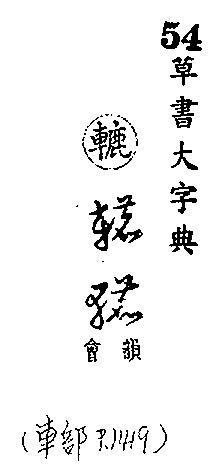 54
草書大字典
轆
韻會
(車部 P.1419)